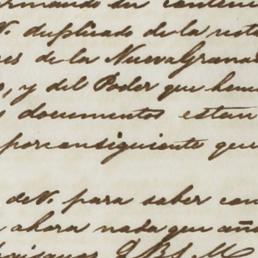 rmando su conteni
V. duplicado de la nota
res de la Nueva Grana
o, y del Poder que hemo
s documentos estan
por consiguiente que
de V. para saber con
ahora nada que aña
paisano Q.B.S.M.